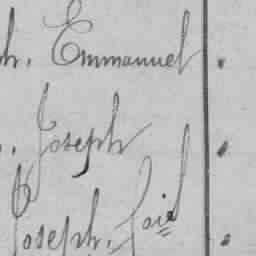 h. Emmanuel.
. Joseph.
Joseph,